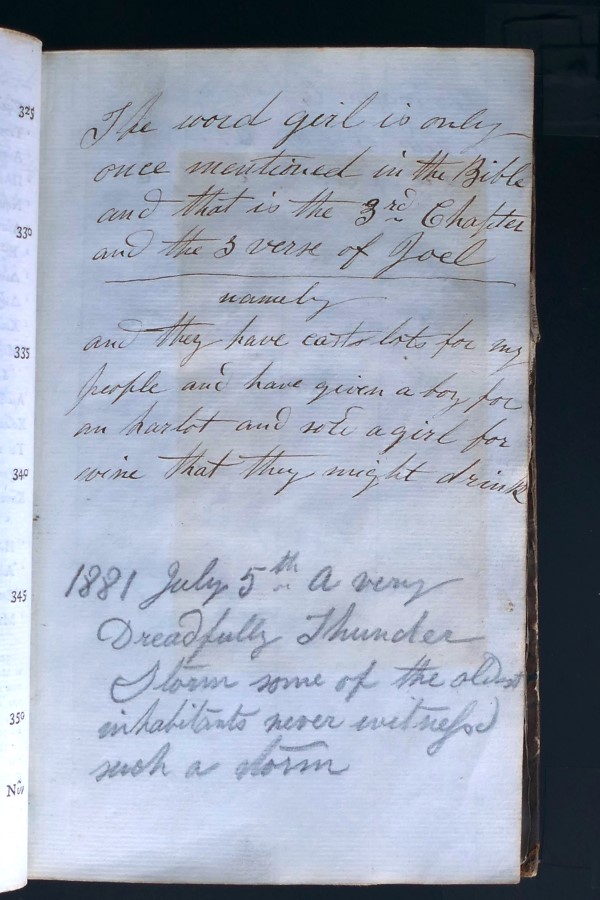 325
330
335
340
345
350
The word girl is only
once mentioned in the Bible
and that is the 3rd Chapter
and the 3 verse of Joel
namely
and they have casts lots for my
people and have given a boy for
an harlot and sold a girl for
wine that they might drink
1881 July 5th A very
Dreadfully Thunder
Storm some of the oldest
inhabitants never witnessd
such a storm